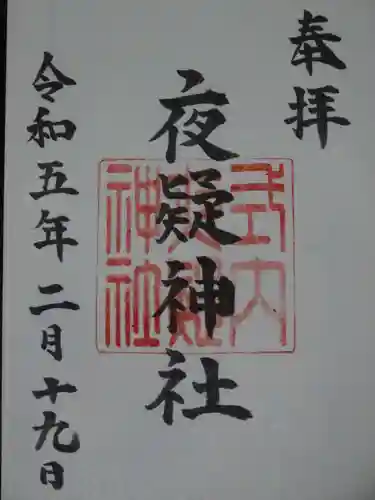 奉拝
夜疑神社
式内
神社
令和五年二月十九日